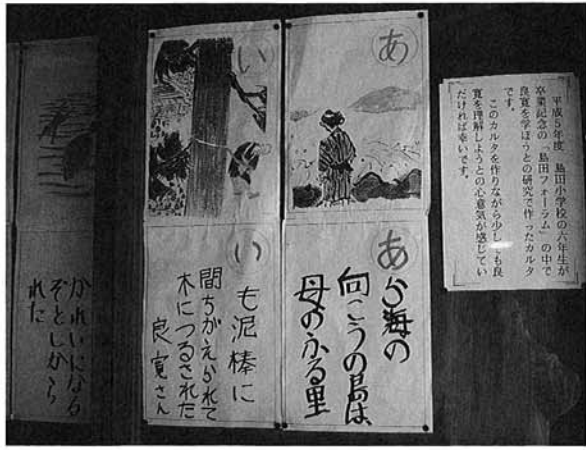 平成5年度 島田小学校の六年生が
卒業記念の「島田フォーラム」の中で
良寛を学ぼうとの研究で作ったカルタ
です。
このカルタを作りながら少しでも良
寛を理解しようとの心意気が感じてい
だければ幸いです。
あ
あら海の
向こうの島は
母のふる里
い
いも泥棒に
間ちがえられて
木につるされた
良寛さん
かれいになる
ぞとしから
れた